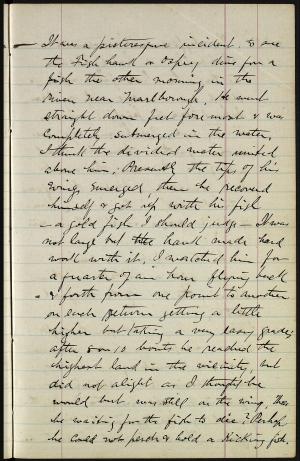 — It was a picturesque incident to see
the Fish hawk or Osprey dive for a
fish the other morning in the
River near Marlborough. He went
straight down feet foremost & was
completely submerged in the water,
I think the divided water united
above him; Presently the tips of his
wings emerged, then he recovered
himself & got up with his fish
— a gold fish I should judge — It was
not large but the hawk made hard
work with it. I watched him for
a quarter of an hour flying back
& forth from one point to another
on each return getting a little
higher but taking a very easy grade;
after 8 or 10 bouts he reached the
highest land in the vicinity, but
did not alight as I thought he
would but was still on the wing. Was
he waiting for the fish to die? Perhaps
he could not perch & hold a kicking fish.